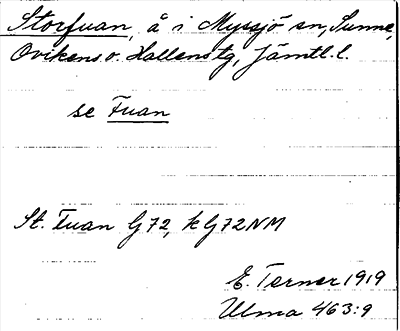 Storfuan, å i Myssjö sn, Sunne,
Ovikens o. Hallens tg, Jämtl. l.
se Fuan
St. Fuan G72, k G72NM
E. Terner 1919
Ulma 463:9